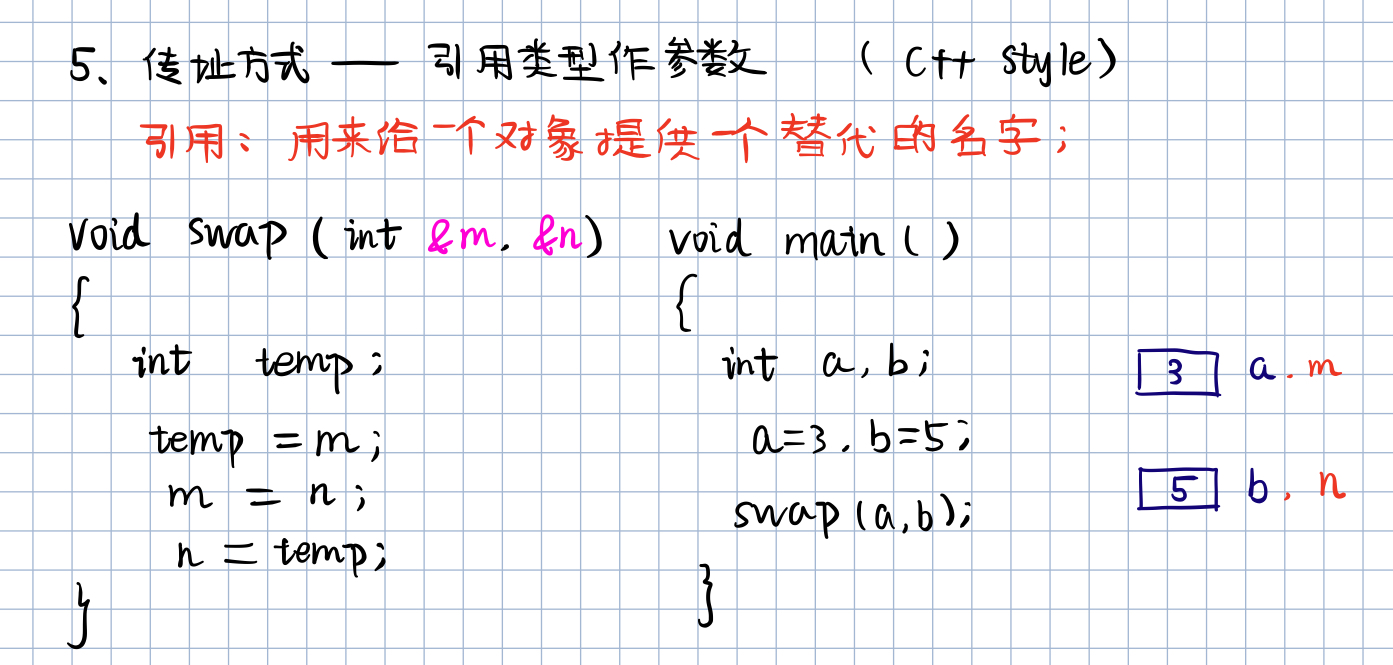 5、传址方式 —— 引用类型作参数 （C++ style）
引用：用来给一个对象提供一个替代的名字；
void swap (int &m, &n)
{
int temp;
temp = m;
m = n;
n = temp;
}
void main ( )
{
int a, b;
a=3, b=5;
swap (a,b);
}
3 a. m
5 b, n